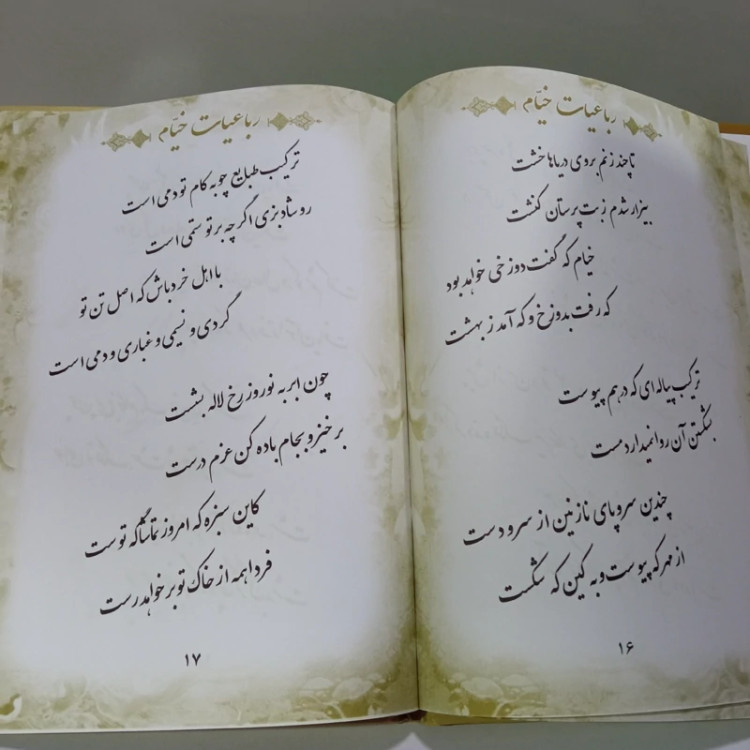 رباعیات خیّام
تا چند زنم بروی دریاها خشت
بیزار شدم ز بت پرستان کنشت
خیام که گفت دوزخی خواهد بود
که رفت بدوزخ و که آمد ز بهشت
ترکیب پیاله ای که درهم پیوست
بشکستن آن روا نمیدارد مست
چندین سر و پای نازنین از سر و دست
از مهر که پیوست و به کین که شکست
۱۶
رباعیات خیّام
ترکیب طبایع چو به کام تو دمی است
رو شاد بزی اگر چه بر تو ستمی است
با اهل خرد باش که اصل تن تو
گردی و نسیمی و غباری و دمی است
چون ابر به نوروز رخ لاله بشست
برخیز و بجام باده کن عزم درست
کاین سبزه که امروز تماشاگه توست
فردا همه از خاک تو بر خواهد رست
۱۷